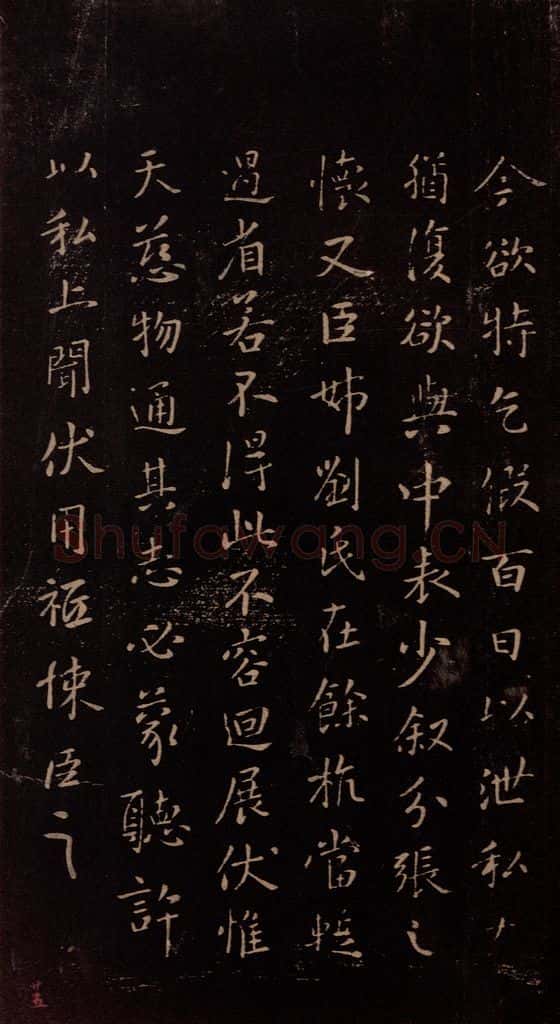 今欲特乞假百日以泄私
猶復欲與中表少叙分張之
懷又臣姊劉氏在餘杭當
過省若不得此不容迴展伏惟
天慈物通其志必蒙聽許
以私上聞伏用祗悚臣之
廿五
Shufawang.CN